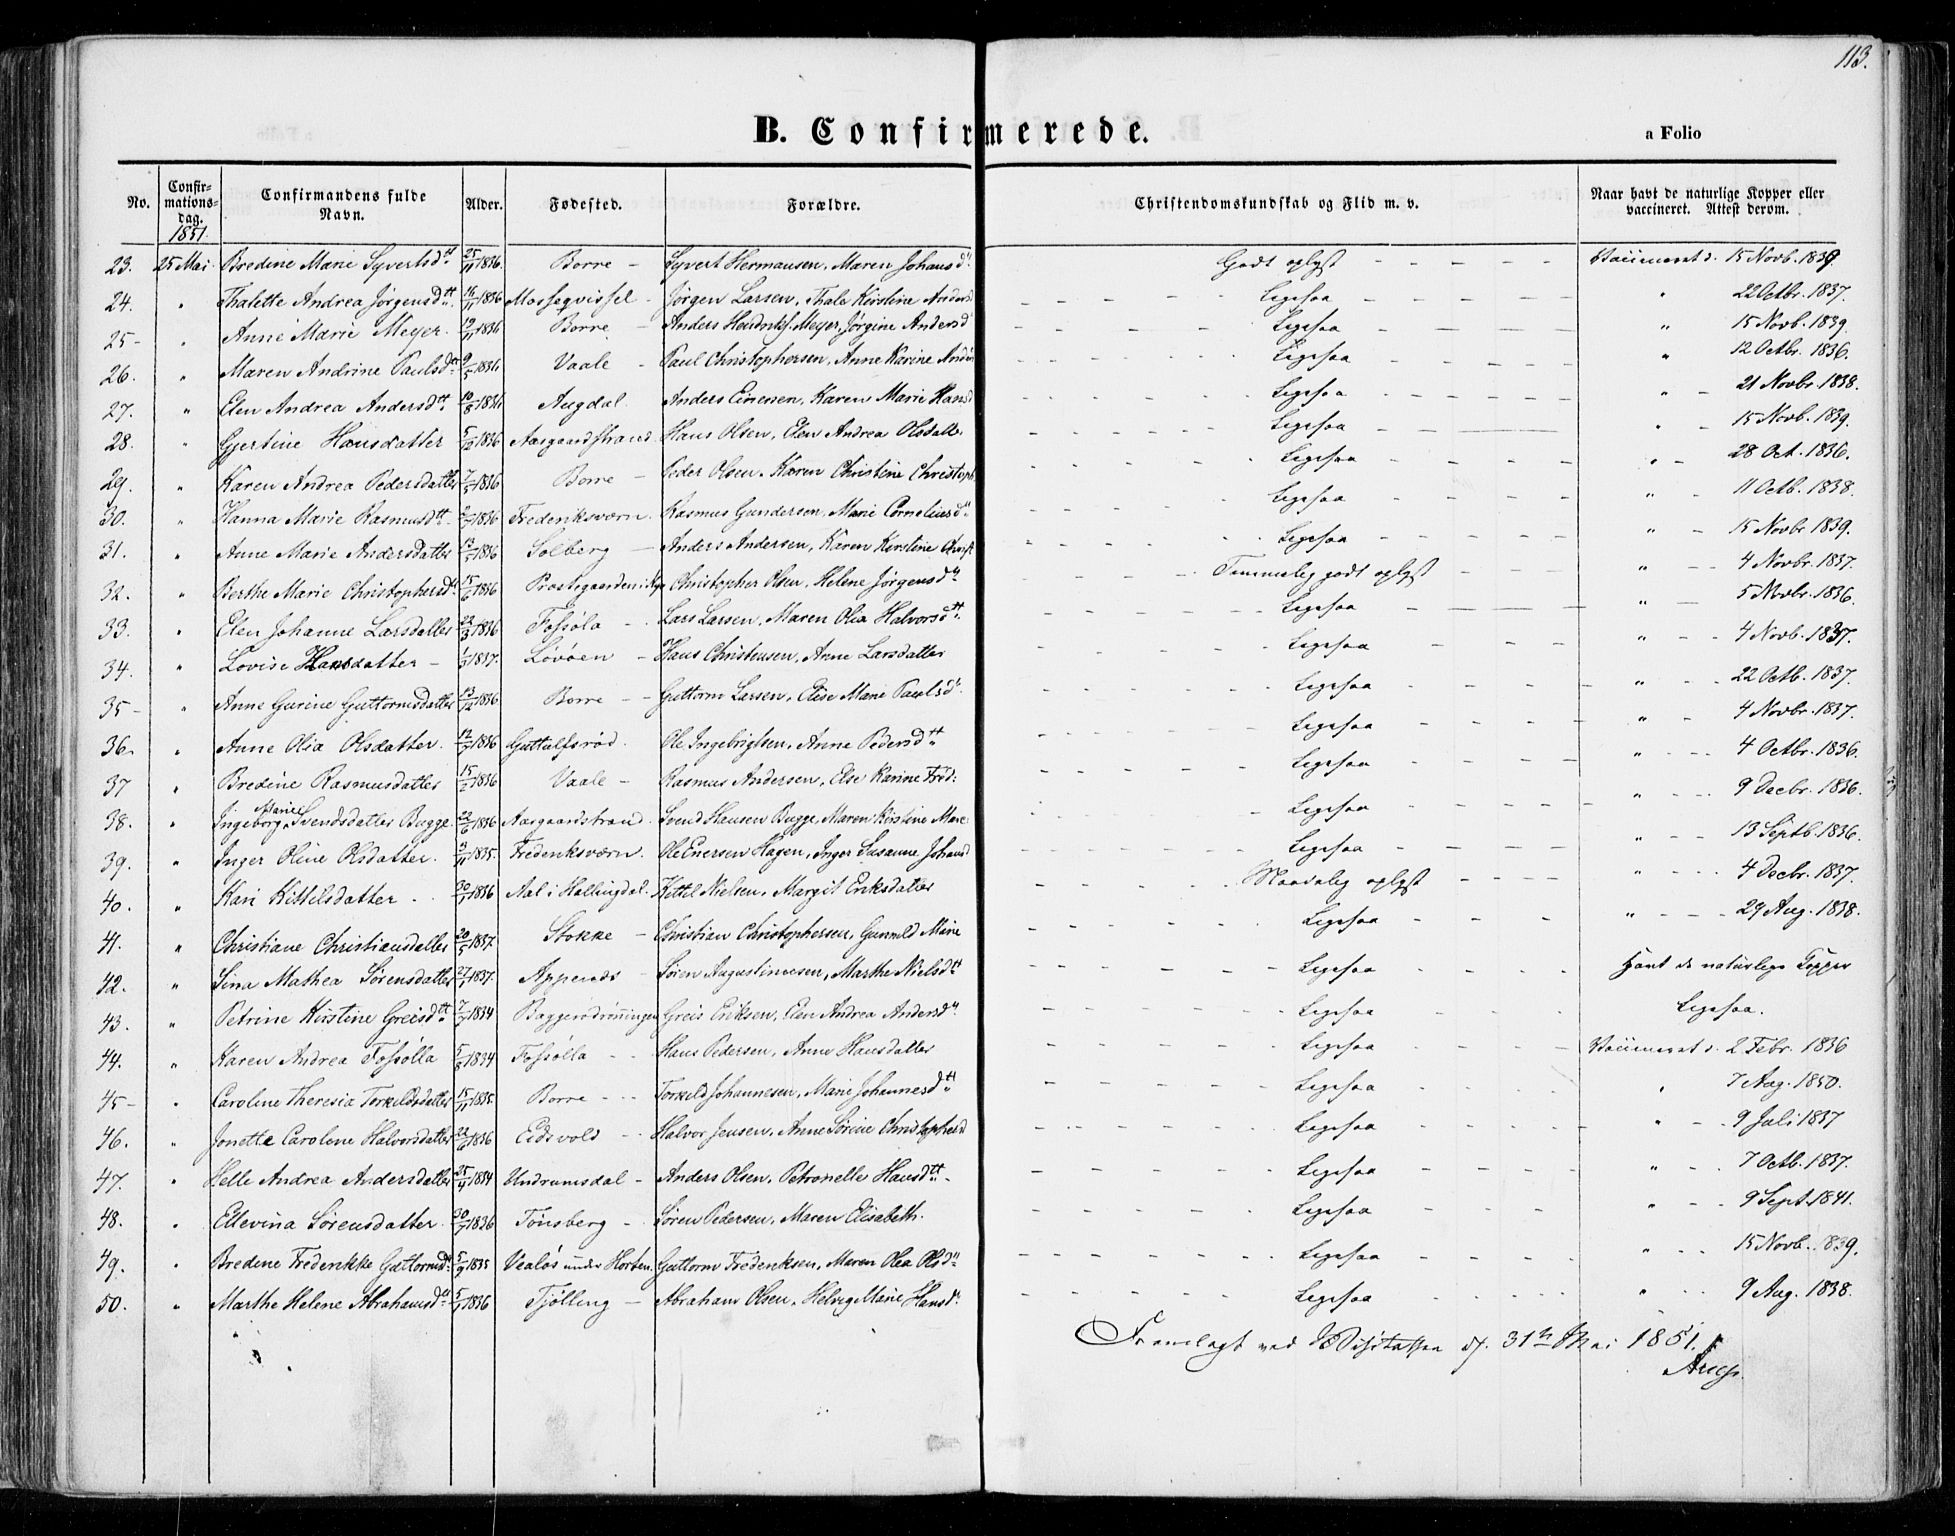 113.
B. Confirmerede.
a Folio
No.
Confirmationsdag. 1851
Confirmandens fulde Navn.
Alder.
Fødested.
Forældre.
Christendomskundskab og Flid m. v.
Naar havt de naturlige Kopper eller vaccineret. Attest derom.
23. 25 Mai Bredine Marie Syvertsdtt. 25/11 1836. Borre – Syvert Hermansen, Maren Johansd. Godt oplyst – – – Vaccineret d. 15 Novb. 1839.
24. " Thalette Andrea Jørgensdtt. 16/11 1836 Jørgen Larsen, Thale Kirstine Andersd Ligesaa " 22 Octbr. 1837.
25– " Anne Marie Meyer. 19/11 1836 Borre – Anders Hendriks. Meyer, Jørgine Andersd Ligesaa " 15 Novb. 1839
26. " Maren Andrine Paulsdtt. 9/5 1836 Vaale – Paul Christophersen, Anne Karine Ligesaa " 12 Octbr. 1836.
27. " Elen Andrea Andersdtt. 10/8 1836 Augdal. Anders Karen Marie Hansd Ligesaa " 21 Novbr. 1838.
28. " Gjertine Hansdatter 5/12 1836 Aasgaardstrand Hans Olsen, Elen Andrea Olsdatter Ligesaa " 15 Novb. 1839.
29. " Karen Andrea Pedersdatter 7/5 1836 Borre – Peder Olsen, Karen Christine Christoph. Ligesaa " 28 Oct. 1836.
30. " Hanna Marie Rasmusdtt. 1836 Frederiksværn. Rasmus Gundersen, Marie Corneliusd. Ligesaa " 11 Octb. 1838.
31. " Anne Marie Andersdatter 1836 Solberg – Anders Andersen, Karen Kirstine Christ Ligesaa " 15 Novbr 1839.
32. " Berthe Marie Christophersdtt 15/6 1836 Christopher Olsen, Helene Jørgensdtt Temmelig godt oplyst " 4 Novbr. 1837.
33. " Elen Johanne Larsdatter 22/3 1836 Fossøla – Lars Larsen, Maren Olia Halvorsdtt. Ligesaa " 5 Novbr. 1836.
34. " Lovise Hansdatter – 1837. Løvøen – Hans Christensen, Anne Larsdatter Ligesaa " 4 Novb. 1837.
35– " Anne Gurine Guttormsdatter 13/12 1836 Borre – – Guttorm Larsen, Elise Marie Paulsd. Ligesaa " 22 Octb. 1837.
36. " Anne Olia Olsdatter. 1836 Guttulfsrød. Ole Ingebrigtsen, Anne Pedersdtt Ligesaa " 4 Novbr. 1837.
37 " Bredine Rasmusdatter 15/2 1836 Vaale – Rasmus Andersen, Else Karine Fred: Ligesaa " 4 Octbr. 1836.
38. " Ingeborg Marie Svendsdatter Bugge. 22/6 1836 Aasgaardstrand. Svend Hansen Bugge, Maren Kirstine Ligesaa " 9 Decbr. 1836.
39. " Inger Oline Olsdatter. 1835. Frederiksværn. Ole Enersen Hagen, Inger Susanne Johansd Ligesaa " 13 Septb. 1836.
40. " Kari Kittilsdatter. 30/1 1836 Aal i Hallingdal. Kittil Nielsen, Margit Eriksdatter Maadelig oplyst " 4 Decbr. 1837.
41. " Christiane Christiansdatter 20/5 1837. Stokke – Christian Christophersen, Gunnild Marie Ligesaa " 29 Aug. 1838.
42. " Sina Mathea Sørensdatter 27/1 1837. Appenæs – Søren Augustinusen, Marthe Nielsdtt Ligesaa Havt de naturlige Kopper
43. " Petrine Kirstine Greisdtt. 7/7 1834 Greis Eriksen, Elen Andrea Andersd. Ligesaa Ligesaa.
44. " Karen Andrea Fossølla 5/8 1834 Fossølla – – Hans Pedersen, Anne Hansdatter Ligesaa Vaccineret d. 2 Febr. 1836
45– " Caroline Theresia Torkildsdatter 15/11 1835. Borre – – Torkild Johannesen, Marie Johannesdtt Ligesaa " 7 Aug. 1850.
46. " Jonette Caroline Halvorsdatter 22/6 1836 Eidsvold – Halvor Jensen, Anne Sørine Christophersd Ligesaa " 9 Juli 1837
47. " Helle Andrea Andersdatter 25/4 1834 Undrumsdal – Anders Olsen, Petronelle Hansdtt. – Ligesaa " 7 Octb. 1837.
48. " Ellevina Sørensdatter. 30/7 1836 Tønsberg – Søren Pedersen, Maren Elisabeth. Ligesaa " 9 Sept. 1841.
49. " Bredine Frederikke Guttormsdtt 5/9 1835 Vealøs under Horten. Guttorm Frederiksen, Maren Olea Olsdtt. Ligesaa " 15 Novb. 1839.
50. " Marthe Helene Abrahamsdtt 5/1 1836 Tjølling – Abraham Olsen, Helvig Marie Hansd. Ligesaa " 9 Aug. 1838.
Fremlagt ved Visitatsen d. 31te Mai 1851.
Arup.